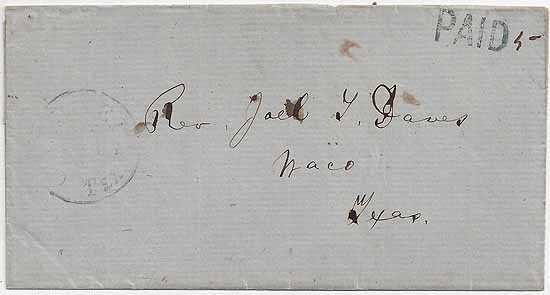 PAID 5
Rev. Joel T. Daves
Waco
Texas.